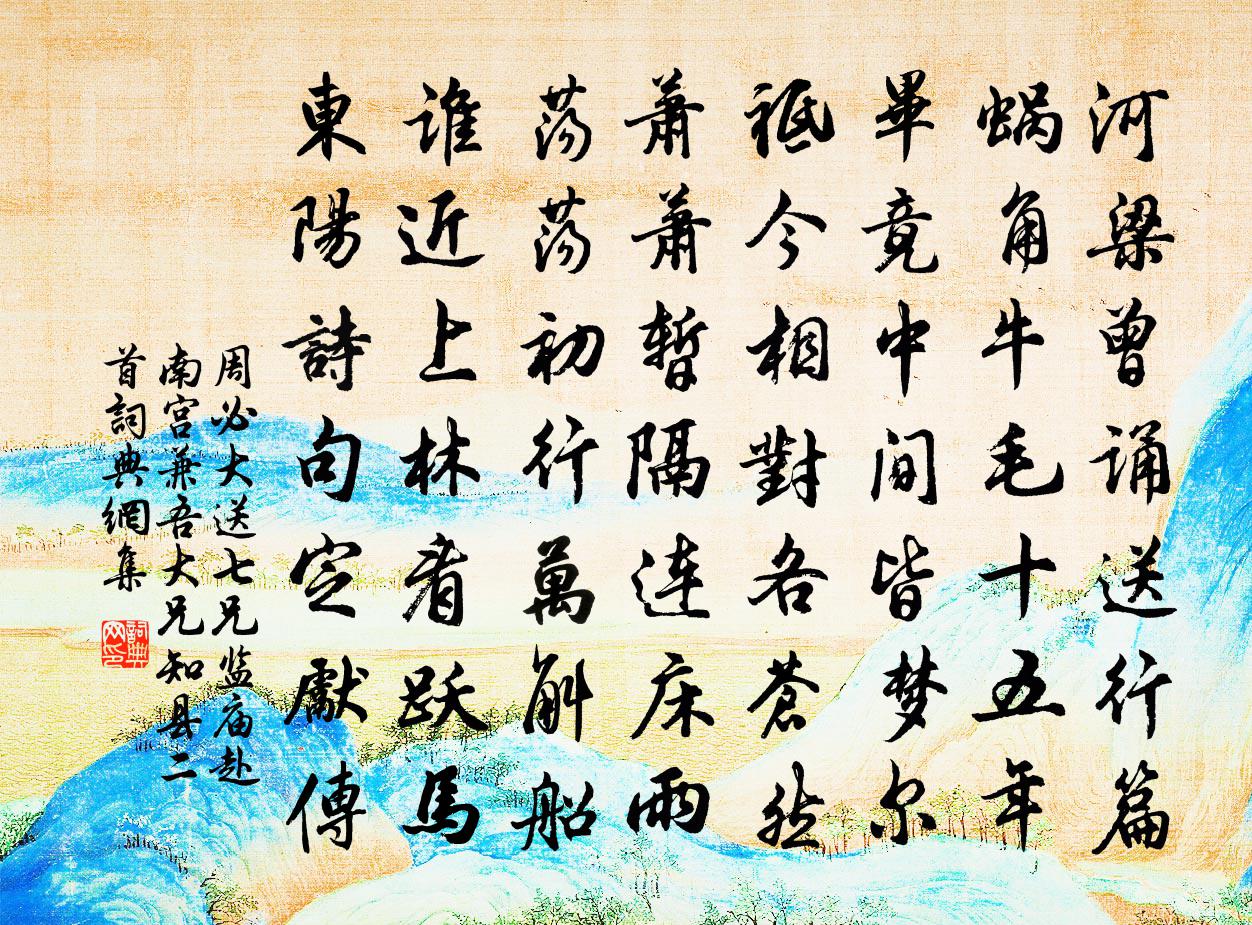 河梁曾诵送行篇
蜗角牛毛十五年
畢竟中间皆梦尔
祗今相對各蒼然
萧萧暫隔连床雨
荡荡初行萬斛船
谁近上林看跃馬
東陽詩句定獻傳
周必大送七兄监庙赴
南宫兼吾大兄知县二
首詞典網集
詞典网印